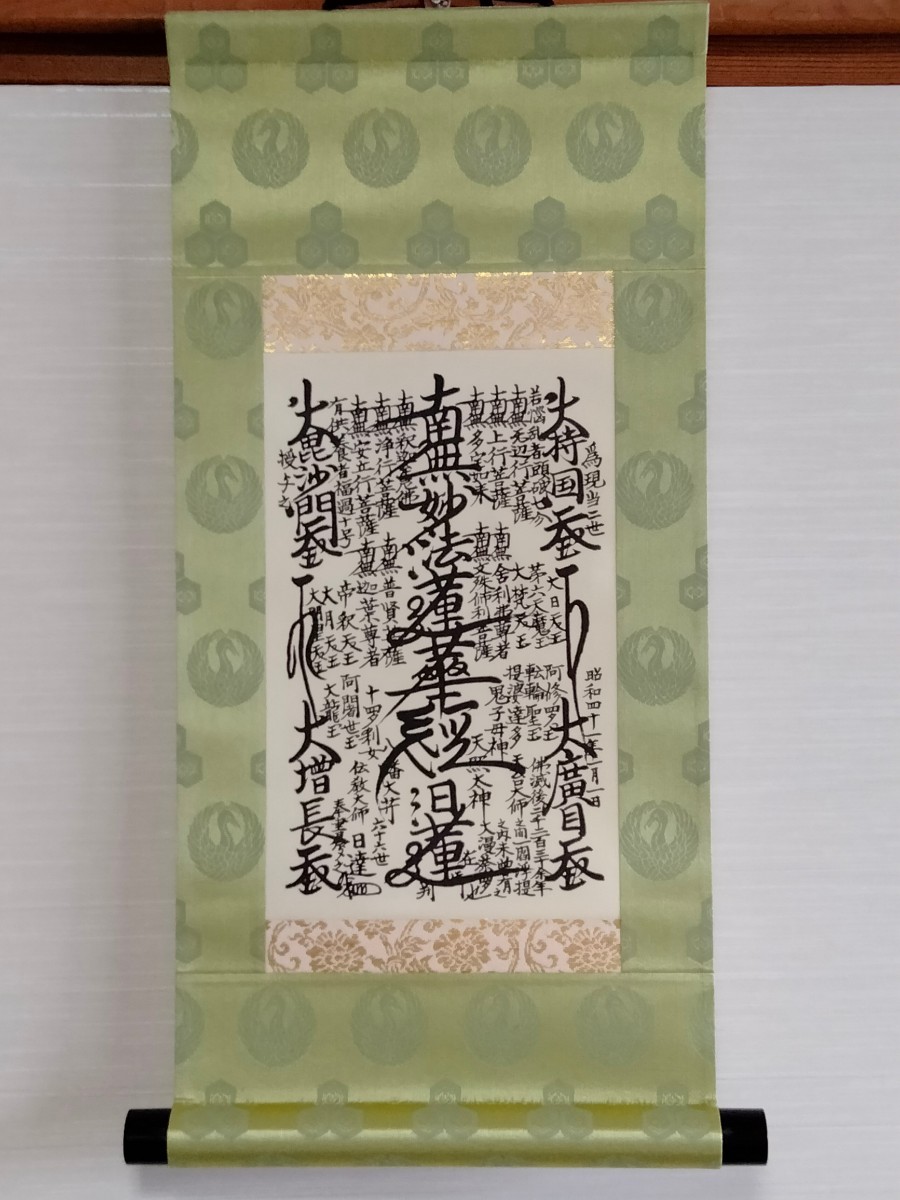 為現当二世
昭和四十一年一月一日
大持国天王
大廣目天王
若悩乱者頭破七分
南無无辺行菩薩
南無上行菩薩
南無多宝如来
南無舎利弗尊者
南無文殊師利菩薩
大日天王
第六天魔王
大梵天王
阿修羅王
転輪聖王
提婆達多
鬼子母神
天照大神
天台大師
佛滅後二千二百三十余年
之間一閻浮提
之内未曽有之
大漫荼羅也
南無妙法蓮華経
日蓮
在
判
南無釈迦牟尼佛
南無浄行菩薩
南無安立行菩薩
有供養者福過十号
南無普賢菩薩
南無迦葉尊者
帝釈天王
大月天王
十羅刹女
阿闍世王
大龍王
八幡大菩薩
伝教大師
六十六世
日達
奉書写之
大毘沙門天王
授与之
大増長天王